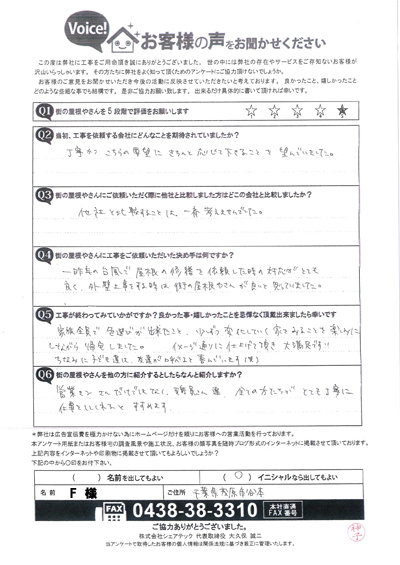 Voice!
お客様の声をお聞かせください
この度は弊社に工事をご用命頂き誠にありがとうございました。世の中には弊社の存在やサービスをご存知ないお客様が
沢山いらっしゃいます。その方たちに弊社をよく知って頂くためのアンケートにご協力頂けないでしょうか。
お客様のご意見をお聞かせいただき今後の活動に反映させていただきたいと考えております。良かったこと、嬉しかったこと
どのような些細な事でも結構です。是非ご協力お願い致します。出来るだけ具体的に書いて頂ければ幸いです。
Q1 街の屋根やさんを5段階で評価をお願いします ☆ ☆ ☆ ☆ ★
Q2 当初、工事を依頼する会社にどんなことを期待されていましたか?
丁寧かつこちらの要望にきちんと応じて下さることを望んでいました。
Q3 街の屋根やさんにご依頼いただく際に他社と比較しました方はどこの会社と比較しましたか?
他社と比較することは、一番考えませんでした。
Q4 街の屋根やさんに工事をご依頼いただいた決め手は何ですか?
一昨年の台風で屋根の修理を依頼した時の対応がとても
良く、外壁工事をする時は街の屋根やさんが良いと思っていました。
Q5 工事が終わってみていかがですか?良かった事・嬉しかったことを忌憚なく頂戴出来ましたら幸いです
家族全員で色選びが出来たこと、少しずつ変化していく家をみることを楽しみに
しながら帰宅しました。イメージ通りに仕上げて頂き大満足です!!
ちなみに子ども達は、友達が
喜んでいます(笑)
Q6 街の屋根やさんを他の方に紹介するとしたらなんと紹介しますか?
営業マンさんだけでなく、職人さん達、全ての方たちがとても丁寧に
仕事をしてくれるとすすめます。
*弊社は広告宣伝費を極力かけない為にホームページだけを頼りにお客様への営業活動を行っております。
本アンケート用紙またはお客様宅の調査風景や施工状況、お客様の顔写真を随時ブログ形式のインターネットに掲載させて頂いております。
上記内容をインターネットや印刷物に掲載させて頂いてもよろしいでしょうか?
下記の中から〇印をお付下さい。
( )名前を出してもよい ( 〇 )イニシャルなら出してもよい
名前 F 様 ご住所 千葉県茂原市
FAX 0438-38-3310 本社直通 FAX番号
ご協力ありがとうございました。
株式会社シェアテック 代表取締役 大久保 誠二
当アンケートで取得したお客様の個人情報は関係法規に基づき厳正に管理いたします。